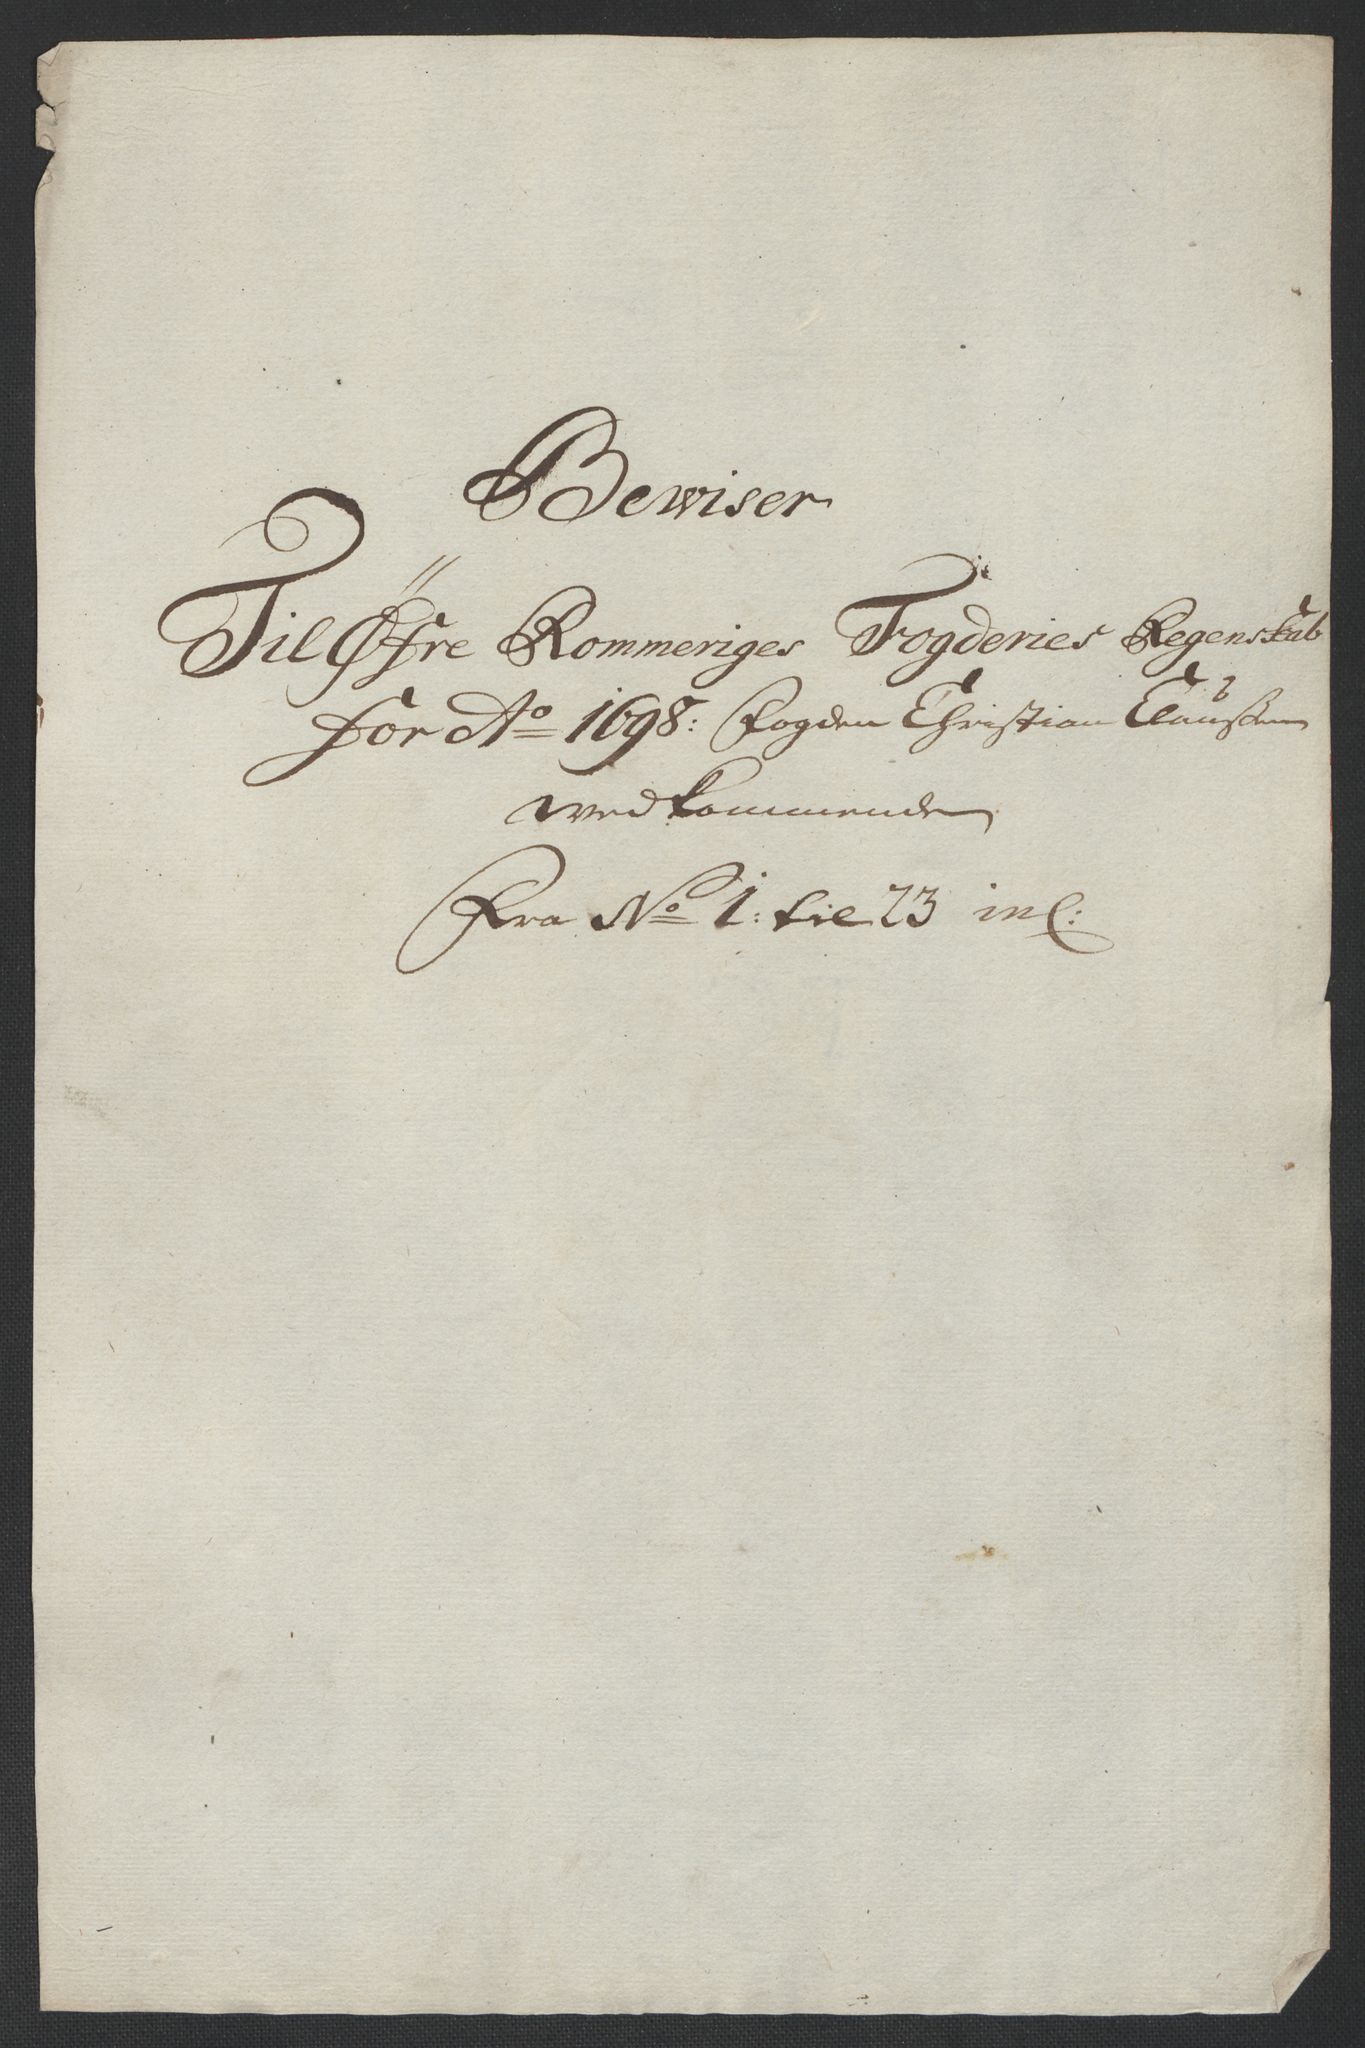 Bewiser
Til Øfre Rommeriges Fogderies Regenskab
for Ao 1698: Fogden Christian Claußen
wedkommende
Fra No 1: til 23 inl: